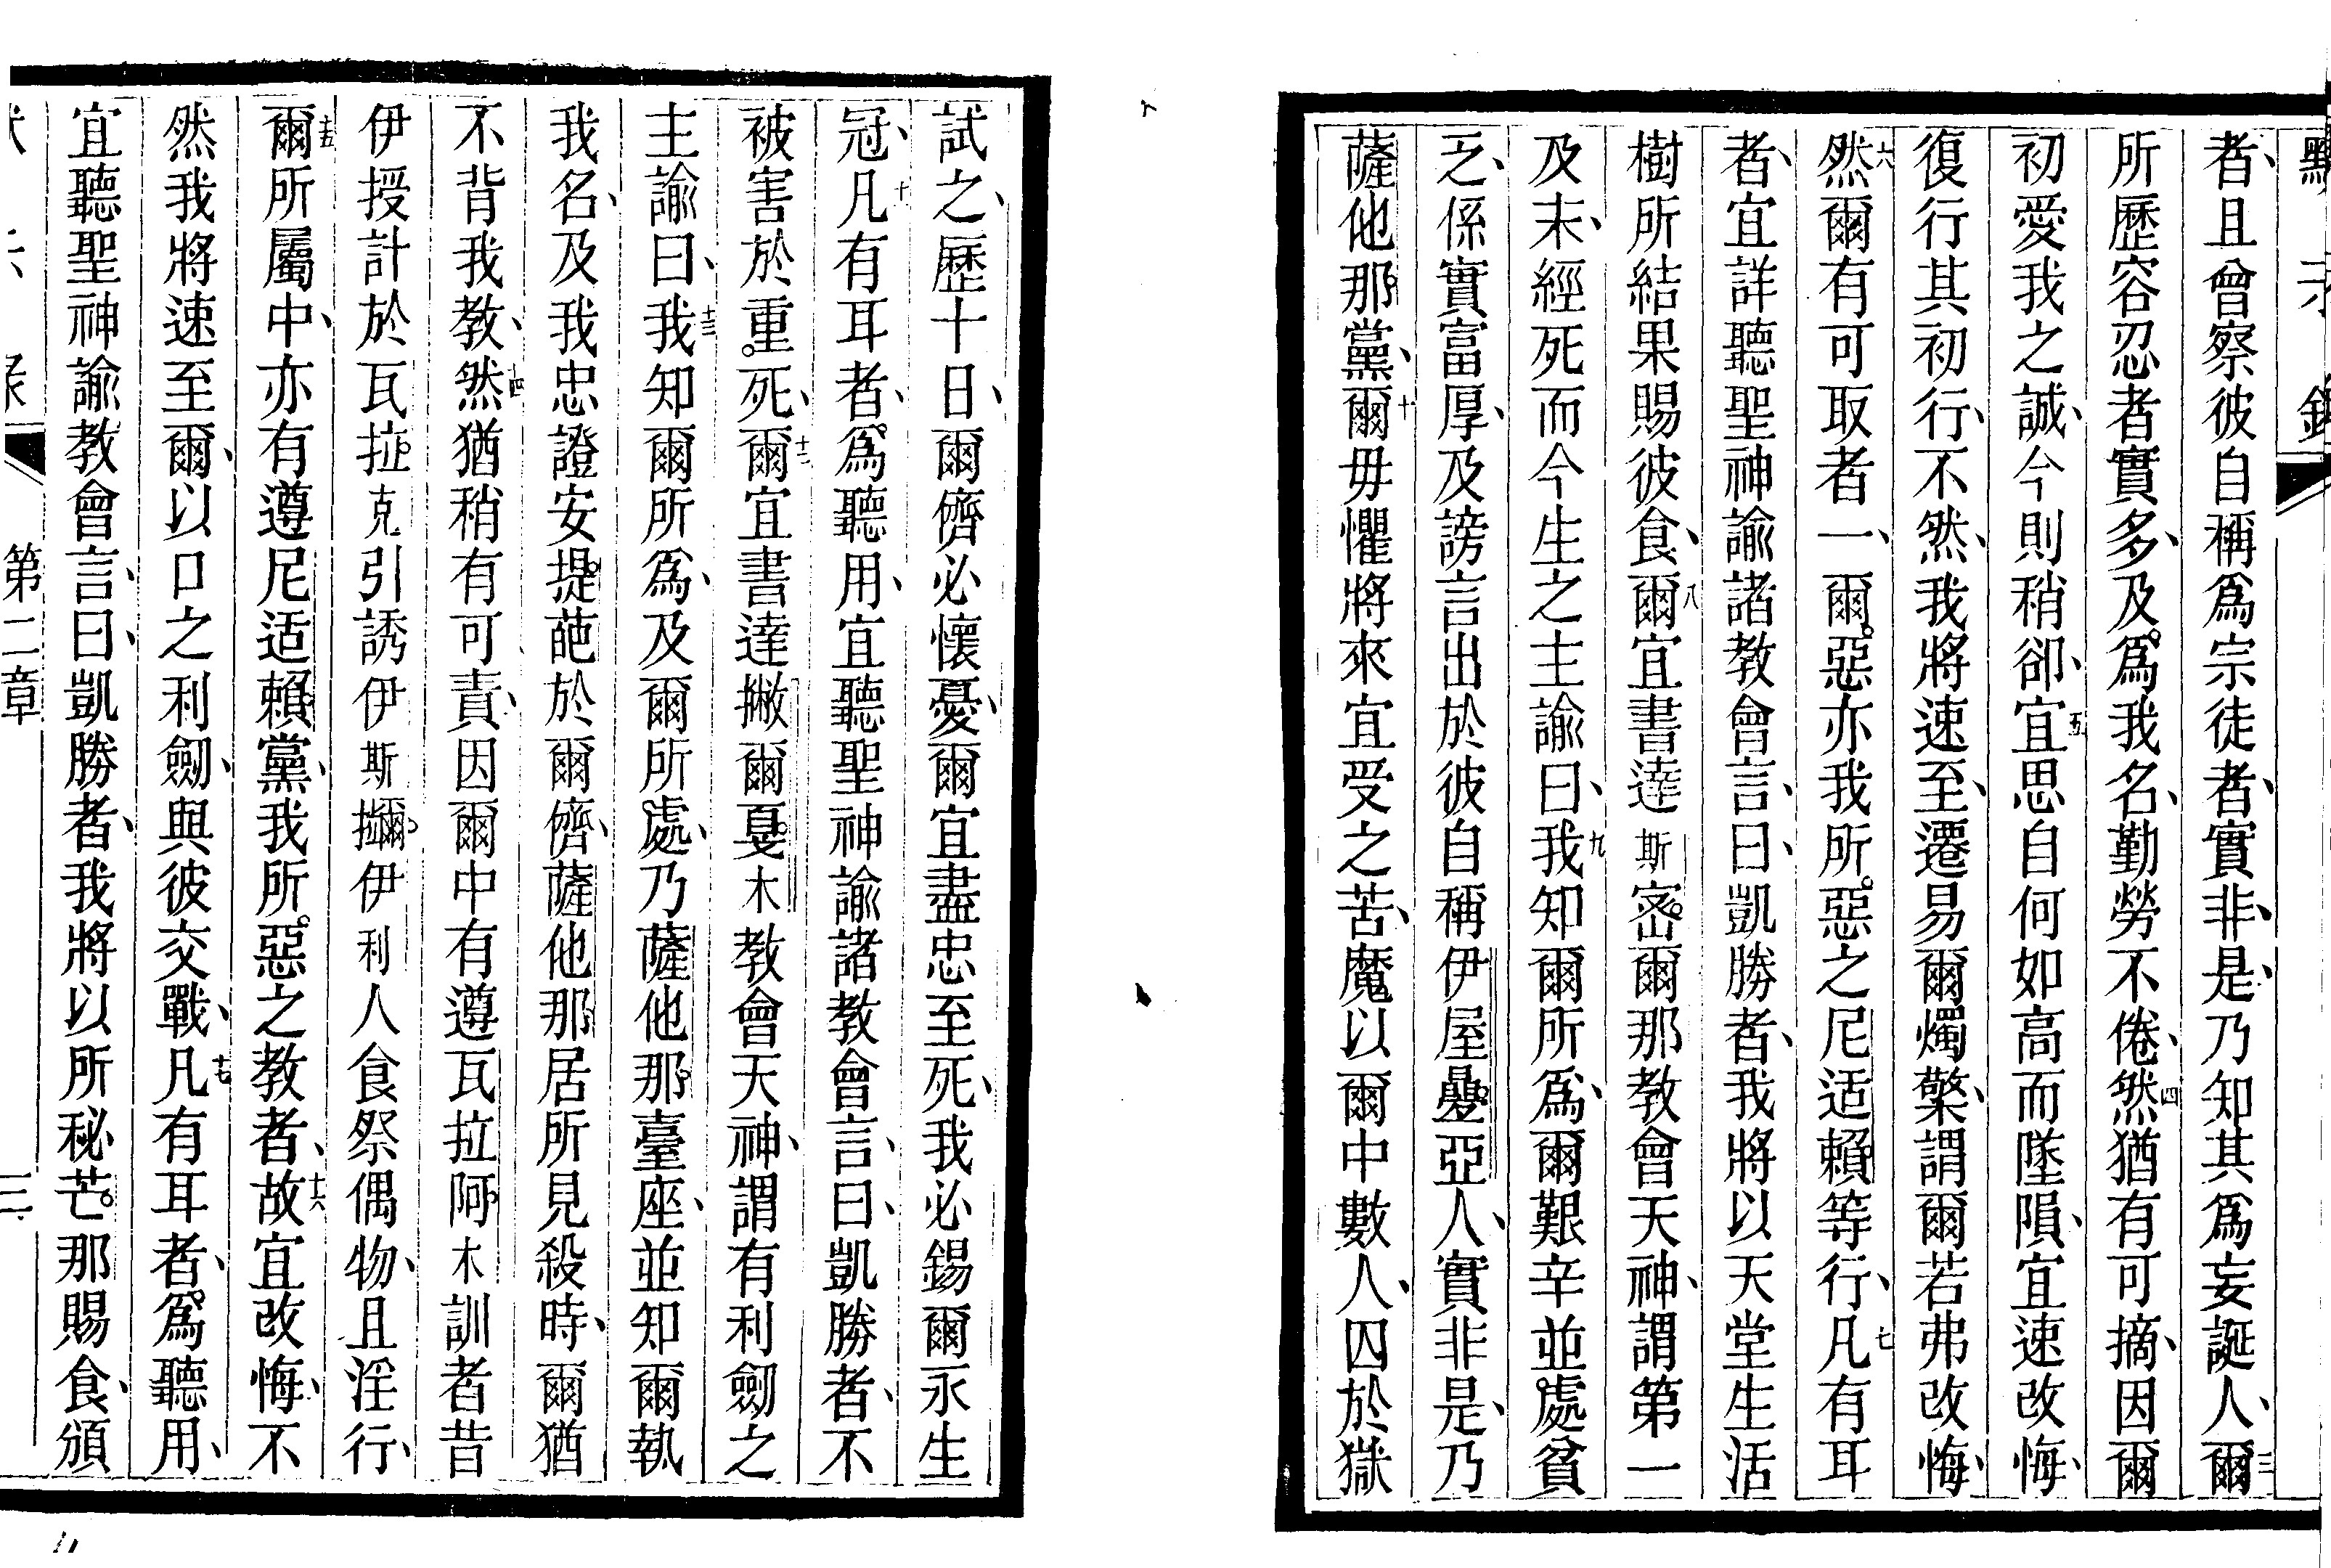 默示錄
者、且曾察彼自稱爲宗徒者、實非是、乃知其爲妄誕人、三爾
所歷容忍者實多、及爲我名、勤勞不倦、四然猶有可摘、因爾
初愛我之誠、今則稍卻、五宜思自何如高而墜隕、宜速改悔、
復行其初行、不然、我將速至、遷易爾燭檠、謂爾若弗改悔、
六然爾有可取者一、爾惡亦我所惡之尼适賴等行、七凡有耳
者、宜詳聽聖神諭諸教會言、曰、凱勝者、我將以天堂生活
樹所結果賜彼食、八爾宜書達斯密爾那教會天神、謂第一
及末、經死而今生之主諭曰、九我知爾所爲、爾艱辛並處貧
乏、係實富厚、及謗言出於彼自稱伊屋疊亞人、實非是、乃
薩他那黨、十爾毋懼將來宜受之苦、魔以爾中數人、囚於獄
試之、歷十日、爾儕必懷憂、爾宜盡忠至死、我必錫爾永生
冠、十凡有耳者、爲聽用、宜聽聖神諭諸教會言、曰、凱勝者、不
被害於重死、十二爾宜書達撇爾戛木教會天神、謂有利劒之
主諭曰、十三我知爾所爲、及爾所處、乃薩他那臺座、並知爾執
我名、及我忠證安提葩於爾儕、薩他那居所見殺時、爾猶
不背我教、十四然猶稍有可責、因爾中有遵瓦拉阿木訓者昔
伊授計於瓦拉克引誘伊斯㩶伊利人食祭偶物、且淫行、
十五爾所屬中、亦有遵尼适賴黨、我所惡之教者、十六故宜改悔、不
然我將速至爾、以口之利劒、與彼交戰、十七凡有耳者、爲聽用、
宜聽聖神諭教會言、曰、凱勝者、我將以所秘芒那賜食、頒
第二章 三